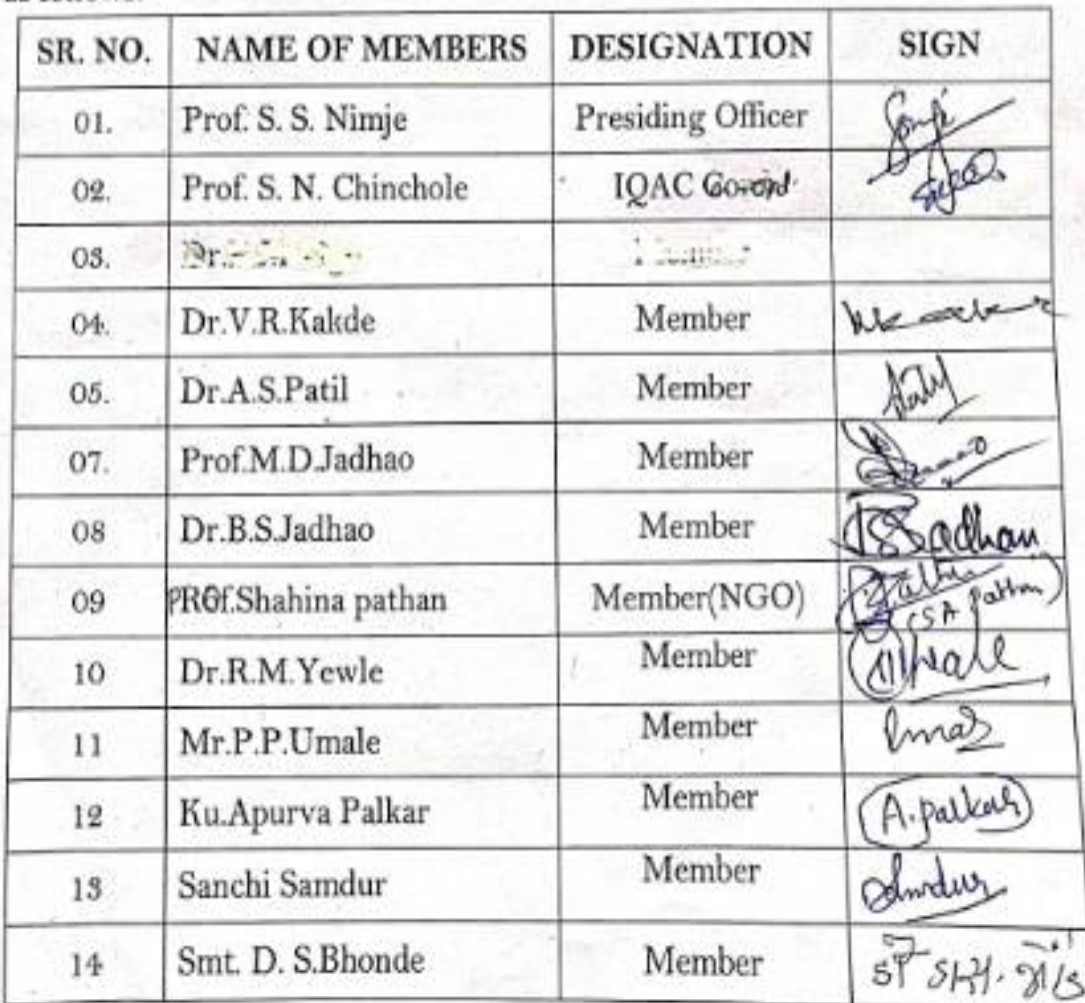 SR. NO. NAME OF MEMBERS DESIGNATION SIGN
01. Prof. S. S. Nimje Presiding Officer
02. Prof. S. N. Chinchole IQAC Co-ord.
03. Dr.
04. Dr.V.R.Kakde Member
05. Dr.A.S.Patil Member
07. Prof.M.D.Jadhao Member
08 Dr.B.S.Jadhao Member
09 PROf.Shahina pathan Member(NGO)
10 Dr.R.M.Yewle Member
11 Mr.P.P.Umale Member
12 Ku.Apurva Palkar Member A.palkar
13 Sanchi Samdur Member
14 Smt. D. S.Bhonde Member